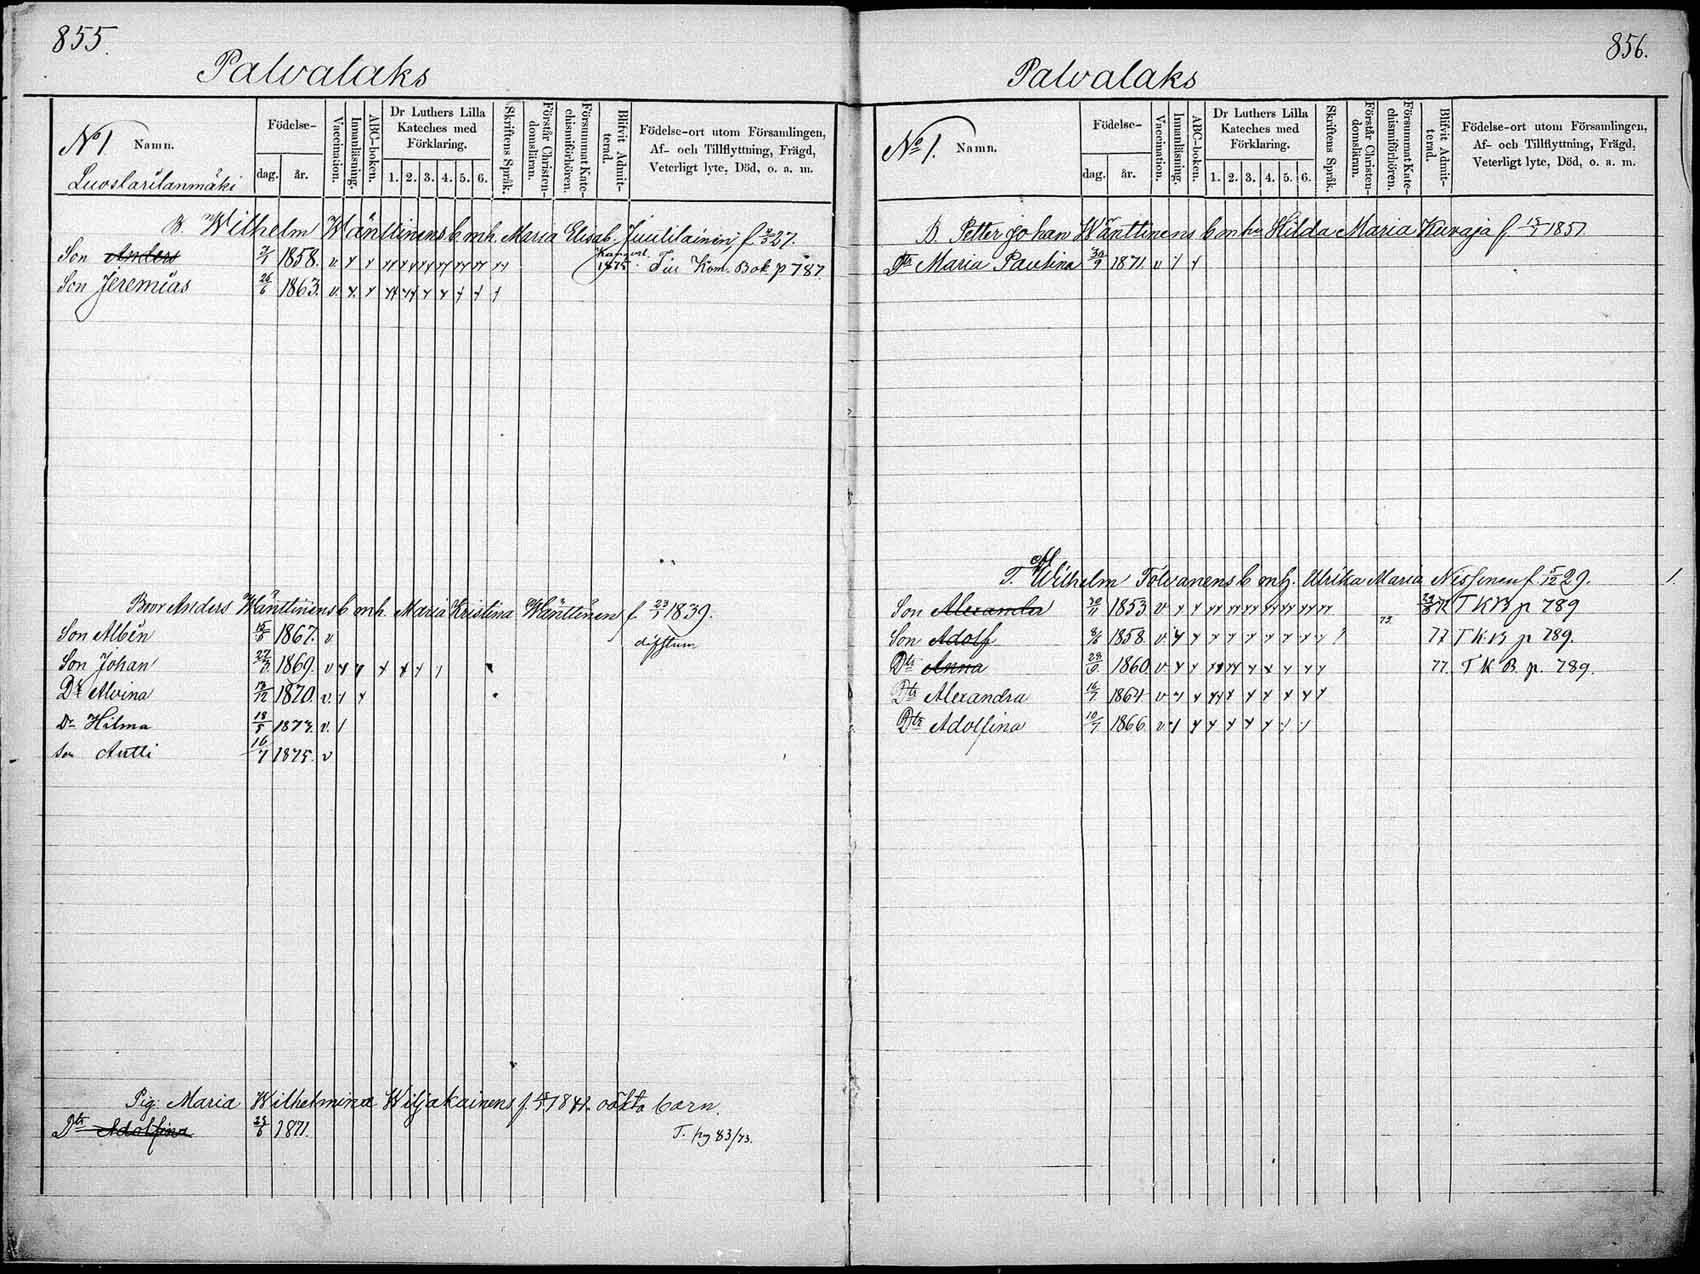 855.
Palvalaks
No 1. Namn. Födelse- dag. år. Vaccination. Innanläsning. ABC-boken. Dr Luthers Lilla Kateches med Förklaring. 1. 2. 3. 4. 5. 6. Skriftens Språk. Förstår Christendomsläran. Försummat Katechismiförhören. Blifvit Admitterad. Födelse-ort utom Församlingen, Af- och Tillflyttning, Frägd, Veterligt lyte, Död, o. a. m.
B. Wilhelm Wänttinens b. m. h. Maria Elisab. Juulilainen f. 27.
Son Anders 1858. v 1875. Kom. Bok p 787
Son Jeremias 26/6 1863. v.
Bror Anders Wänttinens b. m h. Maria Kristina Wänttinen f. 1839.
Son Albin 1867. v
Son Johan 1869. v
Dr Alvina 1870. v.
Dr Hilma 18/5 1873. v.
Son Antti 16/7 1875. v
Pig. Maria Wilhelmina Wiljakainens f. oäkta barn.
Dtr Adolfina 1871. T. pg 83/73.
856.
Palvalaks
No 1. Namn. Födelse- dag. år. Vaccination. Innanläsning. ABC-boken. Dr Luthers Lilla Kateches med Förklaring. 1. 2. 3. 4. 5. 6. Skriftens Språk. Förstår Christendomsläran. Försummat Katechismiförhören. Blifvit Admitterad. Födelse-ort utom Församlingen, Af- och Tillflyttning, Frägd, Veterligt lyte, Död, o. a. m.
B. Petter Johan Wänttinens b m h. Hilda Maria Kuraja f 1851
Dtr Maria Paulina 1871. v
T. Wilhelm Tolvanens b m h. Ulrika Maria Nissinen f 5/12 29. 1.
Son Alexander 1853. v T K B p 789
Son Adolf 1858. v. 73. 77 T K. B p 789.
Dtr Anna 1860. v. 77. T K B. p. 789.
Dtr Alexandra 16/7 1864 v
Dtr Adolfina 10/7 1866 v